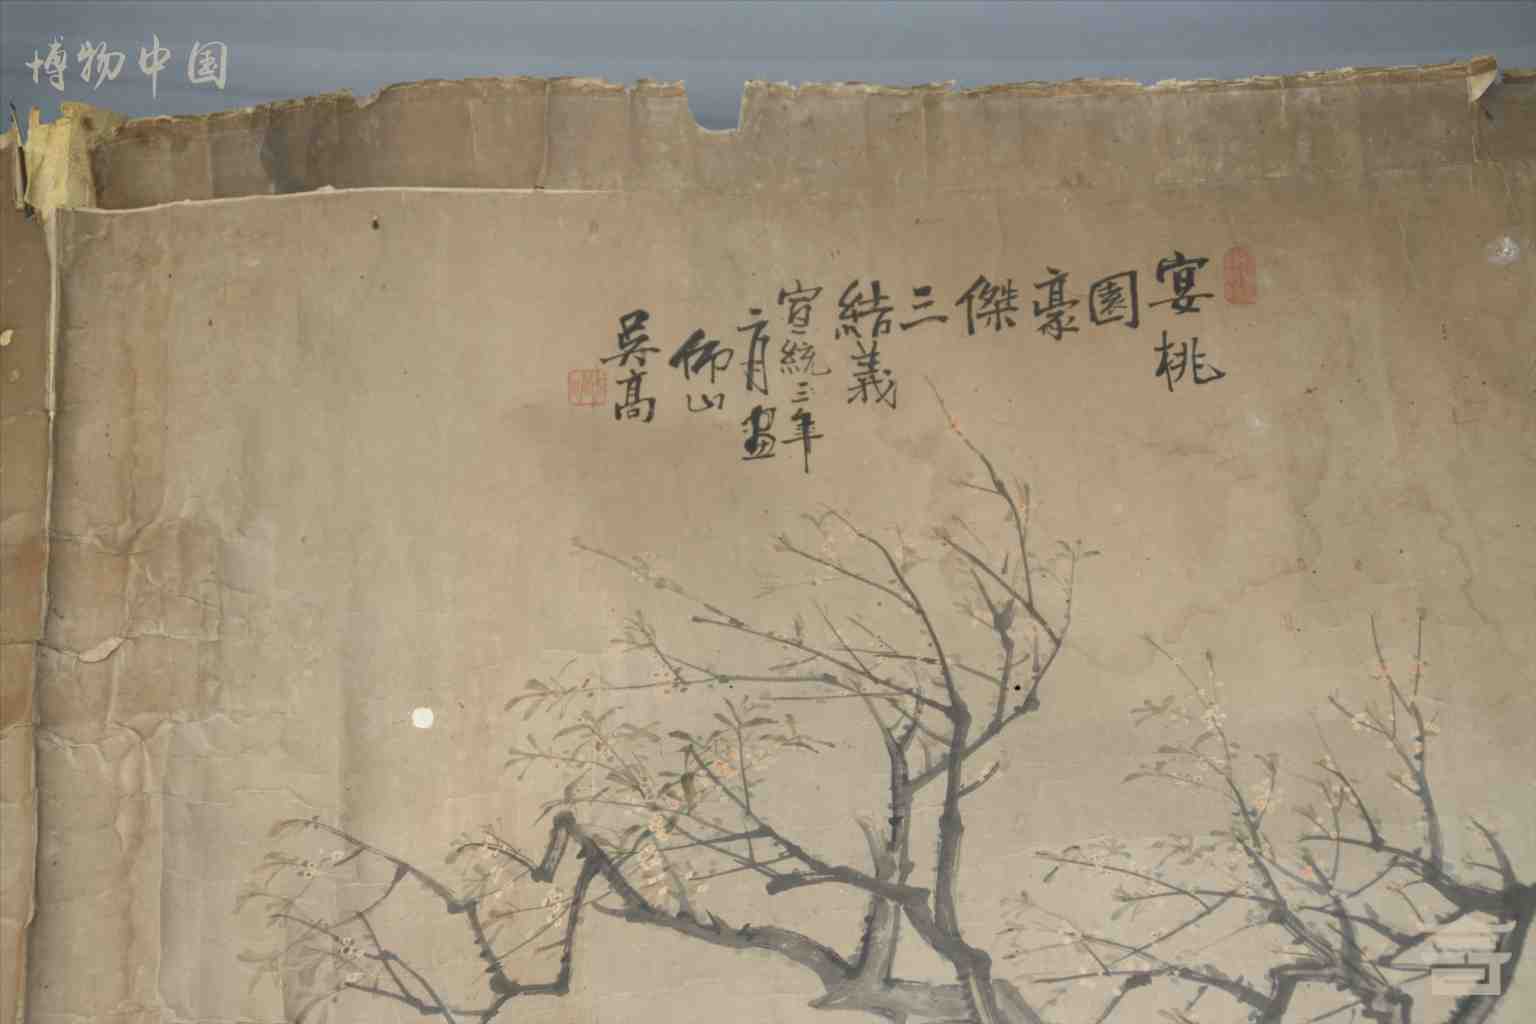 博物中国
宴桃
園
豪
傑
三
結義
宣統三年
二月畫
佈山
吳高